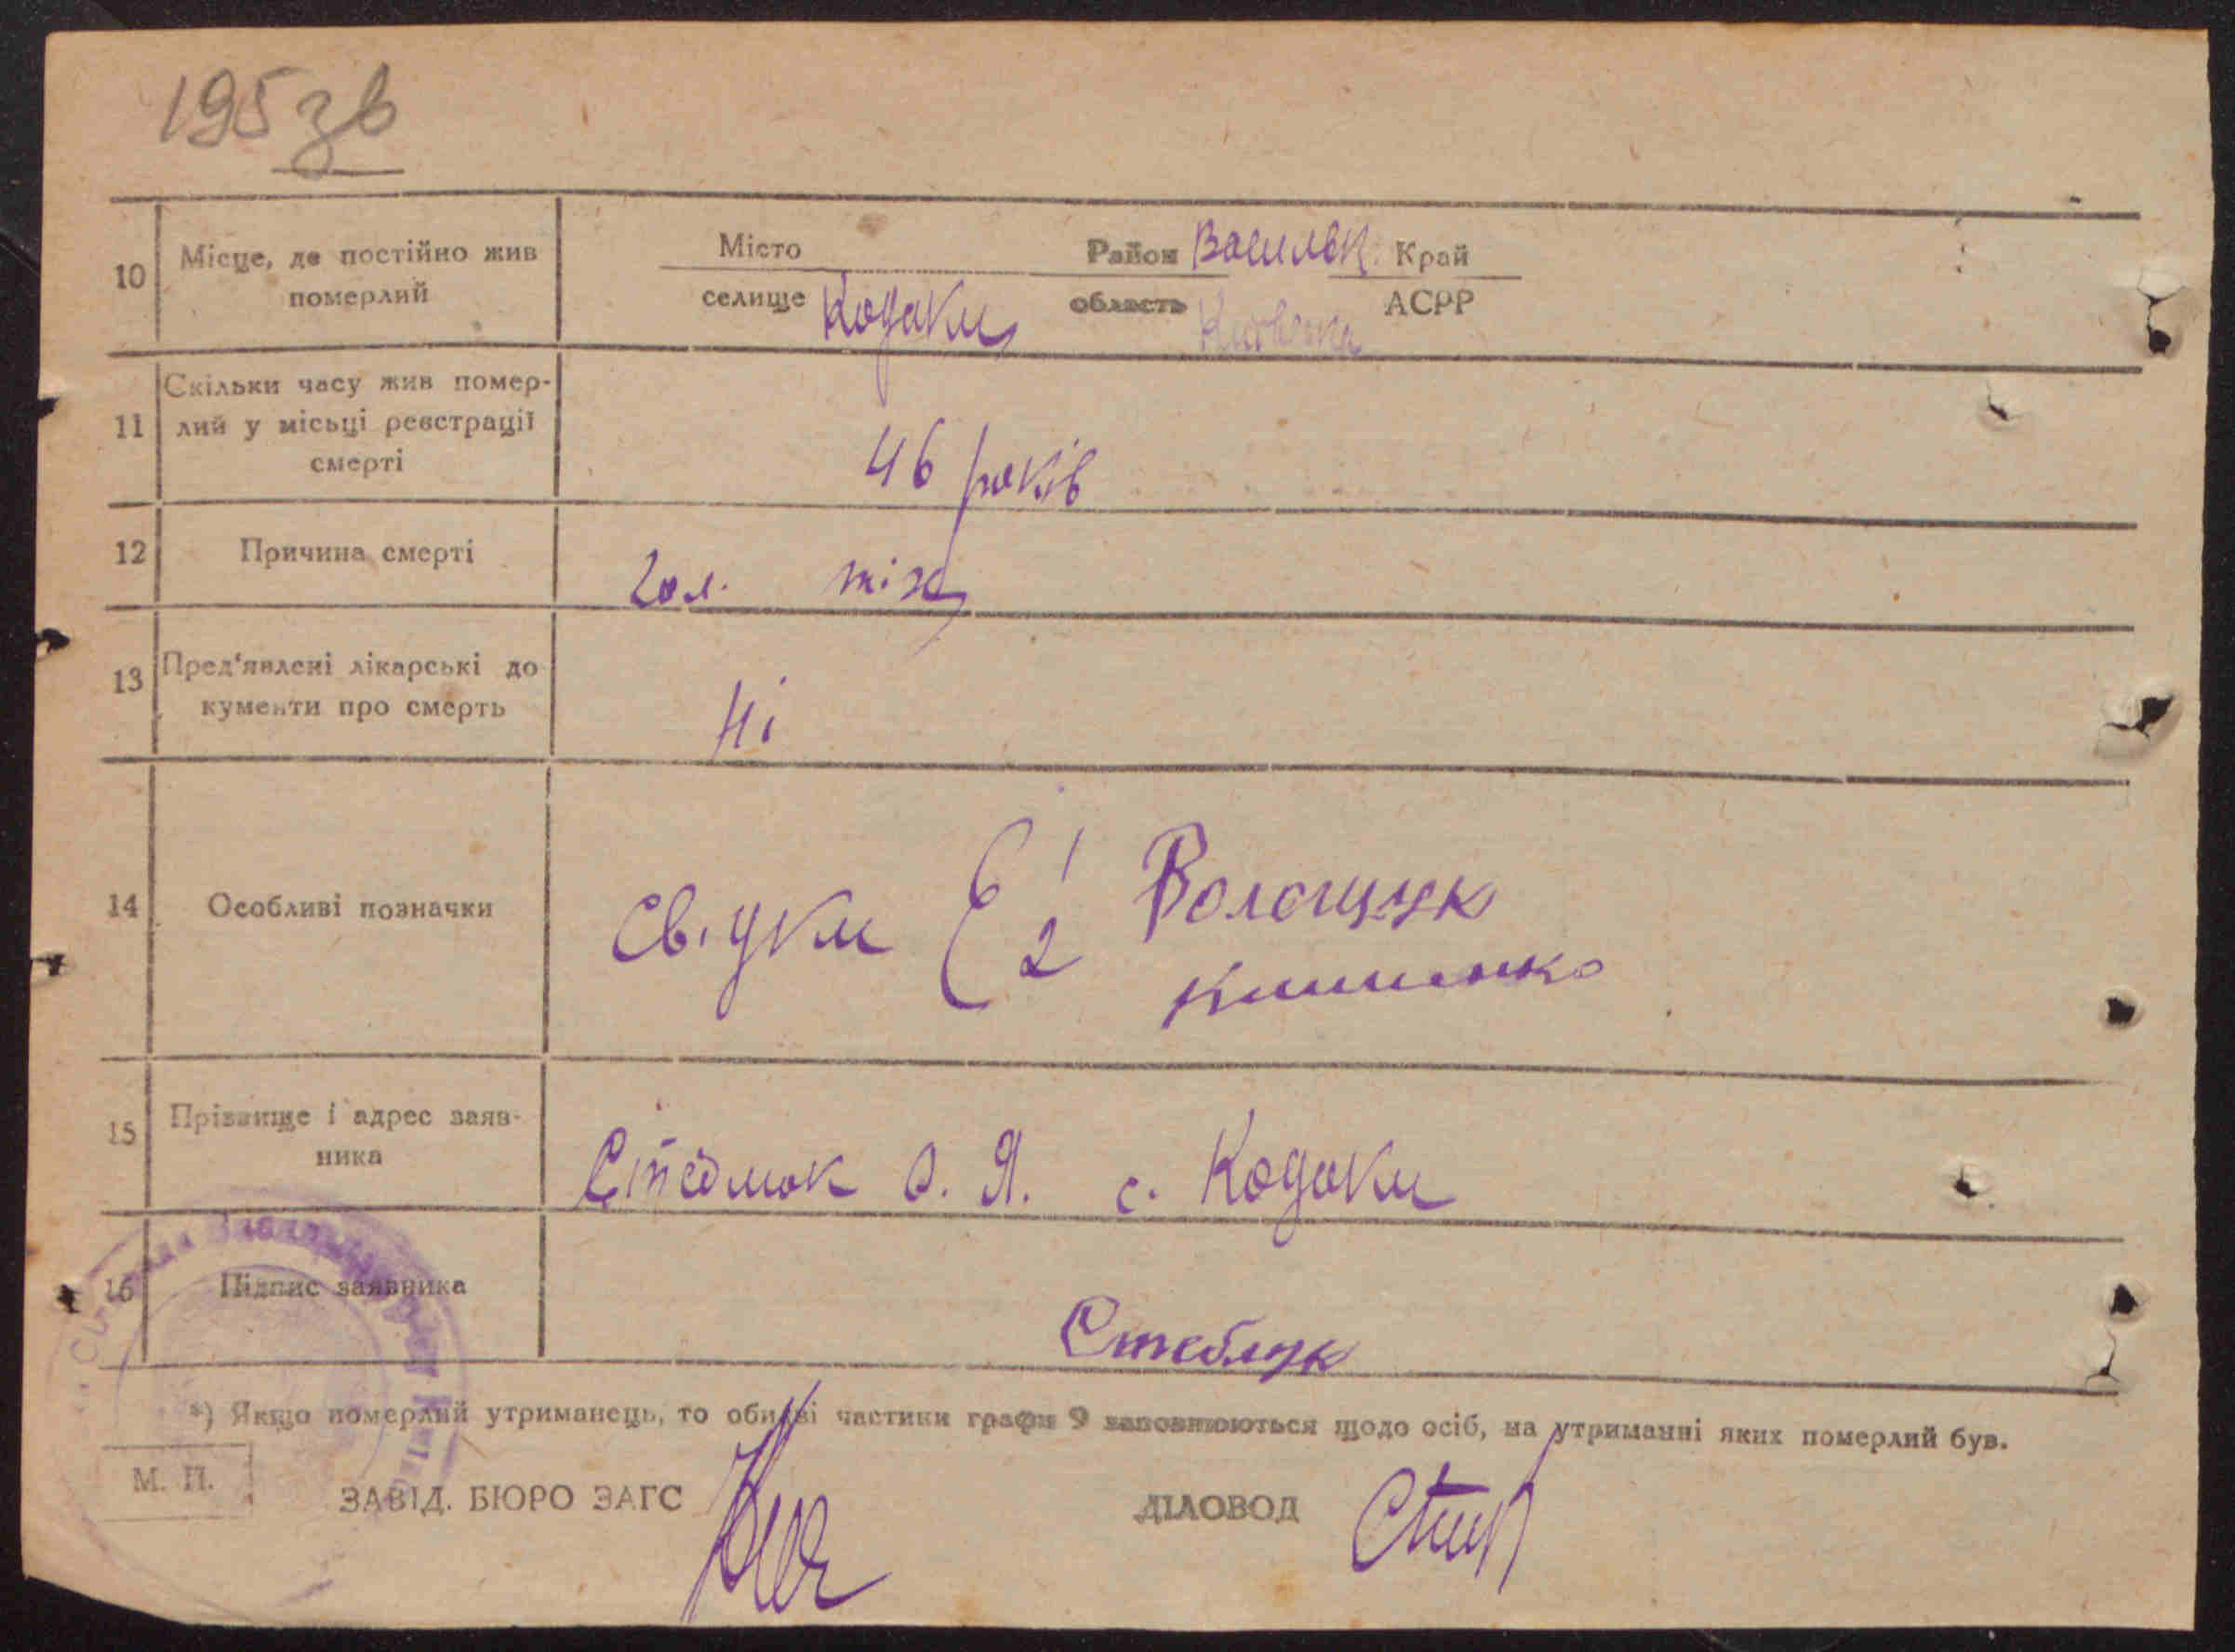 195 зв
10 Місце, де постійно жив померлий
Місто Район Васильк. Край
селище Кодаки область Київська АСРР
11 Скільки часу жив помер-
лий у місьці реєстрації
смерті
46 років
12 Причина смерті
гол. тіж
13 Пред'явлені лікарські до
кументи про смерть
Ні
14 Особливі позначки
Свідки 1 Волощук
2
15 Прізвище і адрес заяв-
ника
О. Я. с. Кодаки
16 Підпис заявника
Стеблук
*) Якщо померлий утриманець, то обидві частини графи 9 заповнюються щодо осіб, на утриманні яких померлий був.
М. П.
ЗАВІД. БЮРО ЗАГС ДІЛОВОД